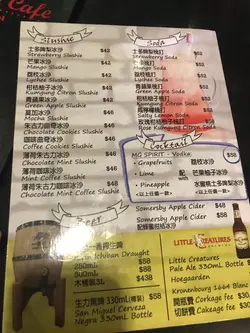 Cafe
Slushie
士多啤梨冰沙 $46
Strawberry Slushie
芒果冰沙 $43
Mango Slushie
荔枝冰沙 $43
Lychee Slushie
柑桔柚子冰沙 $43
Kumquat Citron Slushie
青蘋果冰沙 $43
Green Apple Slushie
莫加冰沙 $43
Mocha Slushie
朱古力曲奇冰沙 $46
Chocolate Cookies Slushie
咖啡曲奇冰沙 $46
Coffee Cookies Slushie
薄荷朱古力冰沙 $46
Chocolate Mint Slushie
薄荷咖啡冰沙 $46
Mint Coffee Slushie
Soda
士多啤梨梳打 $38
Strawberry Soda
芒果梳打
Mango Soda
荔枝梳打
Lychee Soda
青蘋果梳打
Green Apple Soda
柑桔柚子梳打
Kumquat Citron Soda
Salty Lemon Soda
Rose Kumquat Citron Soda
Cocktail
MG SPIRIT - Vodka $58
• Grapefruits 荔枝冰沙
• Lime 配 芒果冰沙
• Pineapple 水蜜桃士多啤梨冰沙
Somersby Apple Cider $38
Somersby Apple Cider $43
Beer
Ichiban Draught
850mL $88
330mL $38
生力黑啤 330mL
San Miguel Cerveza
Negra 330mL Bottle $38
LITTLE CREATURES
Little Creatures
Pale Ale 330mL Bottle $58
Hoegaarden
Kronenbourg 1664 Blanc
開瓶費 Corkage fee
切餅費 Cakeage fee